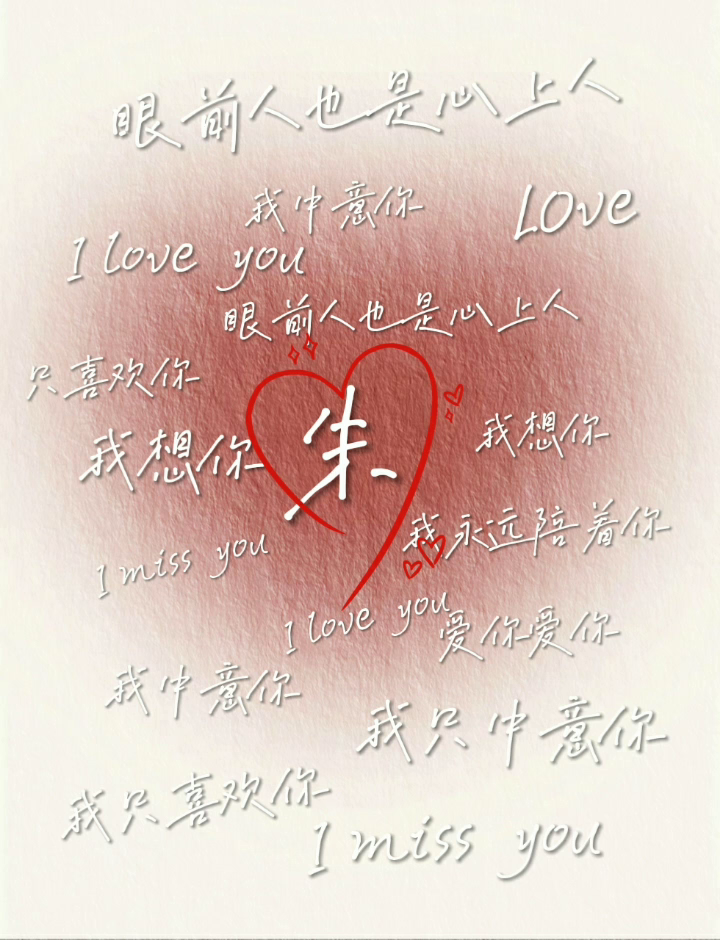 眼前人也是心上人
我中意你
Love
I love you
眼前人也是心上人
只喜欢你
朱
我想你
我想你
我永远陪着你
I miss you
I love you
爱你爱你
我中意你
我只中意你
我只喜欢你
I miss you